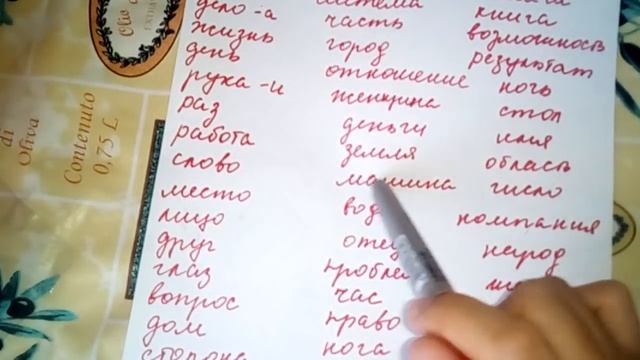 дело -а
жизнь
день
рука -и
раз
работа
слово
место
лицо
друг
глаз
вопрос
дом
сторона
система
часть
город
отношение
женщина
деньги
земля
машина
вод
отец
пробле
час
право
нога
книга
возможность
результат
ночь
стол
имя
область
число
компания
народ
di
Oliva
Contenuto
0,75 L
Olio